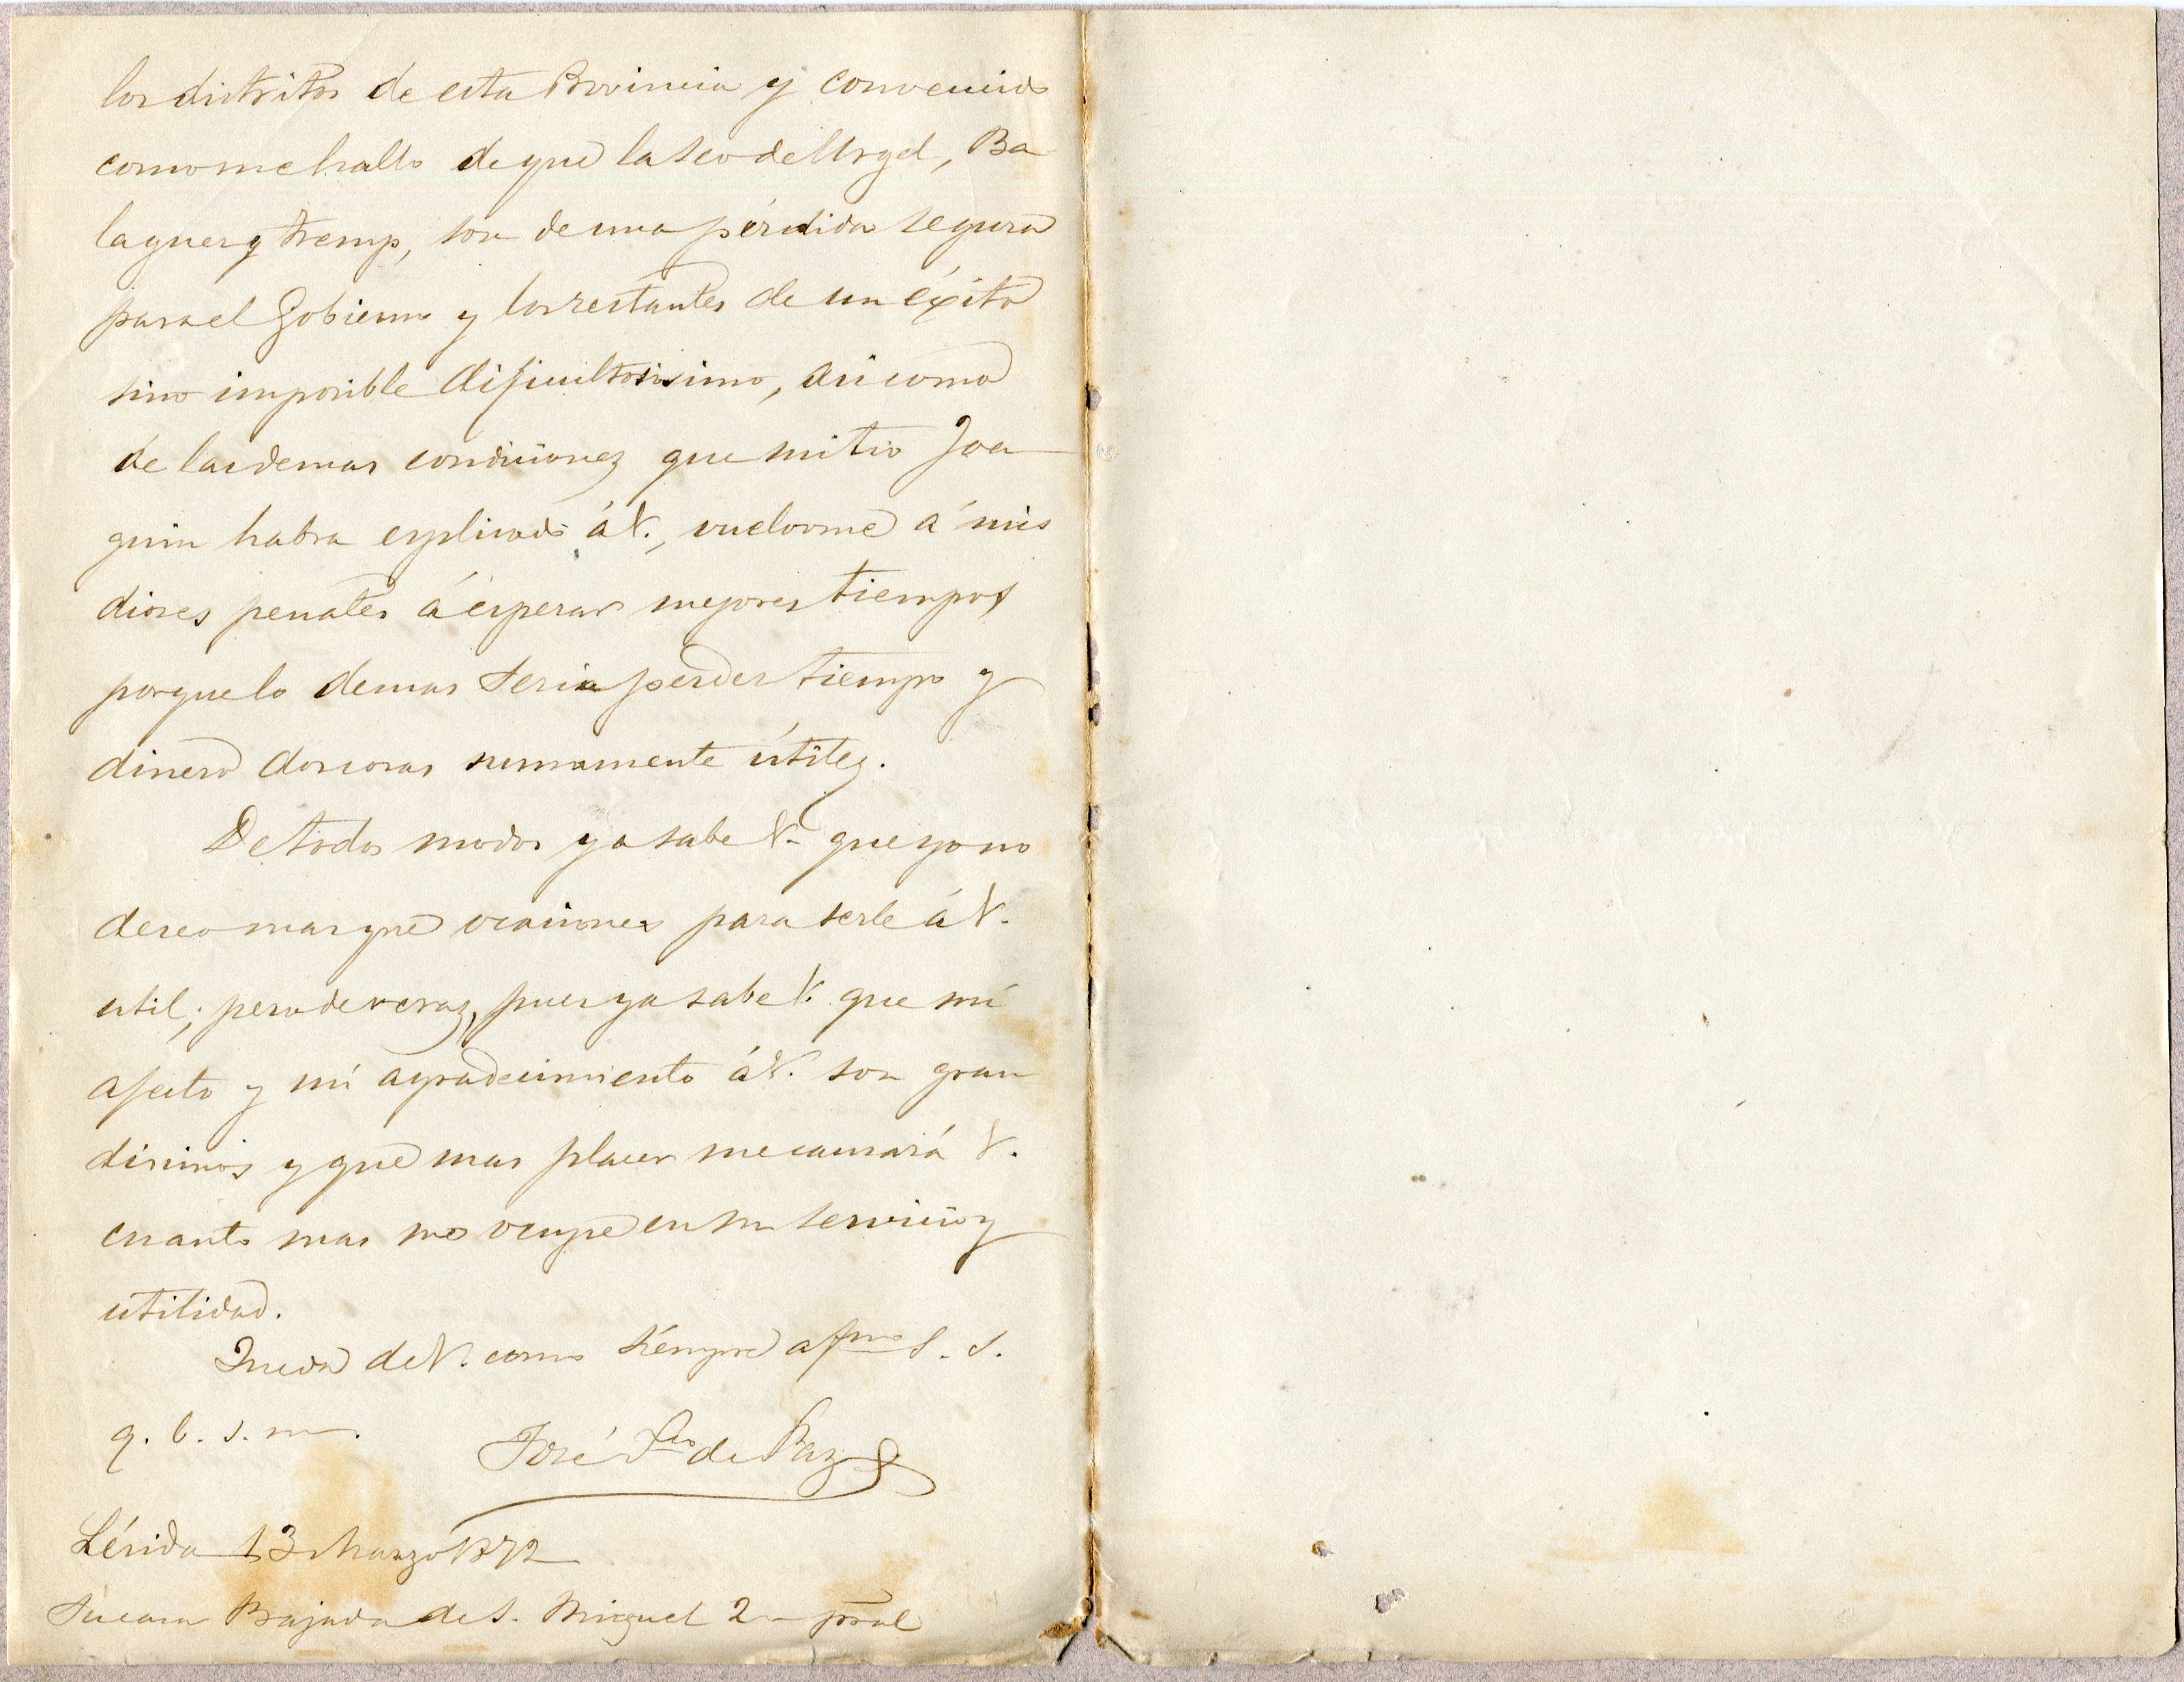 los distritos de esta Provincia y convencido
como me hallo de que la Seo de Urgel, Ba
laguer y Tremp, son de una pérdida segura
para el Gobierno y los restantes de un éxito
sino imposible dificultosisimo, asi como
de las demas condiciones que mi tio Joa
quin habra esplicado á V., vuelvome á mis
dioses penates á esperar mejores tiempos
porque lo demas seria perder tiempo y
dinero dos cosas sumamente útiles.
De todos modos ya sabe V. que yo no
deseo mas que ocasiones para serle á V.
util; pero de veraz, pues ya sabe V. que mi
afecto y mi agradecimiento á V. son gran
disimos y que mas placer me causará V.
cuanto mas me ocupe en su servicio y
utilidad.
Queda de V. como siempre afmo S. S.
q. b. s. m.
José de Paz
Lérida 13 Marzo 1872
Su casa Bajada de S. Miguel 2 pral